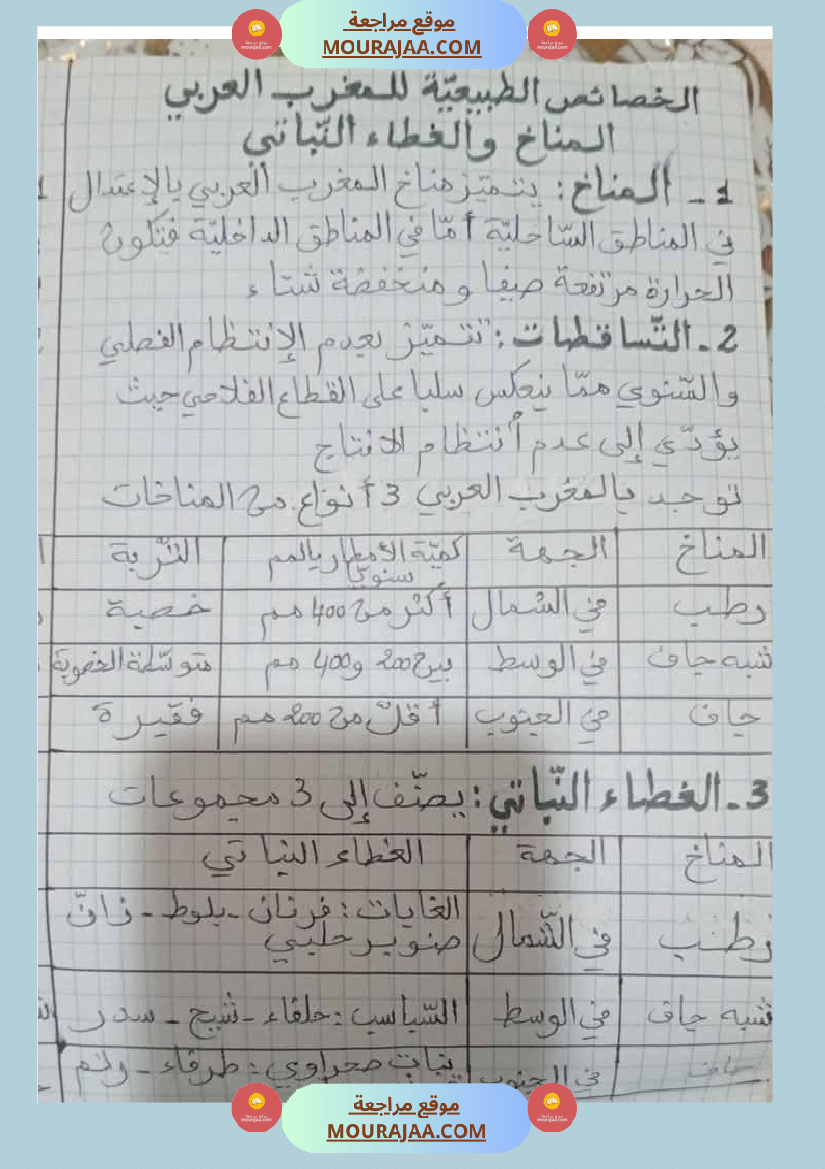 موقع مراجعة
MOURAJAA.COM
الخصائص الطبيعيّة للمغرب العربي
المناخ والغطاء النّباتي
1 - المناخ: يتميّز مناخ المغرب العربي بالإعتدال
في المناطق السّاحليّة أمّا في المناطق الداخليّة فتكون
الحرارة مرتفعة صيفا و منخفضة شتاء
2 - التّساقطات: تتميّز بعدم الإنتظام الفصلي
والسّنوي ممّا ينعكس سلبا على القطاع الفلاحي حيث
يؤدّي إلى عدم أنتظام الانتاج
توجد بالمغرب العربي 3 أنواع من المناخات
المناخ الجهة كميّة الأمطار بالمم سنويّا التّربة
رطب في الشمال أكثر من 400 مم خصبة
شبه جاف في الوسط بين 200 و 400 مم متوسّطة الخصوبة
جاف في الجنوب أقلّ من 200 مم فقيرة
3 - الغطاء النّباتي: يصنّف إلى 3 مجموعات
المناخ الجهة الغطاء النباتي
رطب في الشّمال الغابات: فرنان - بلوط - زانّ
صنوبر حلبي
شبه جاف في الوسط السّباسب: حلفاء - شيح - سدر
جاف في الجنوب نبات صحراوي: طرفاء - رتم
موقع مراجعة
MOURAJAA.COM